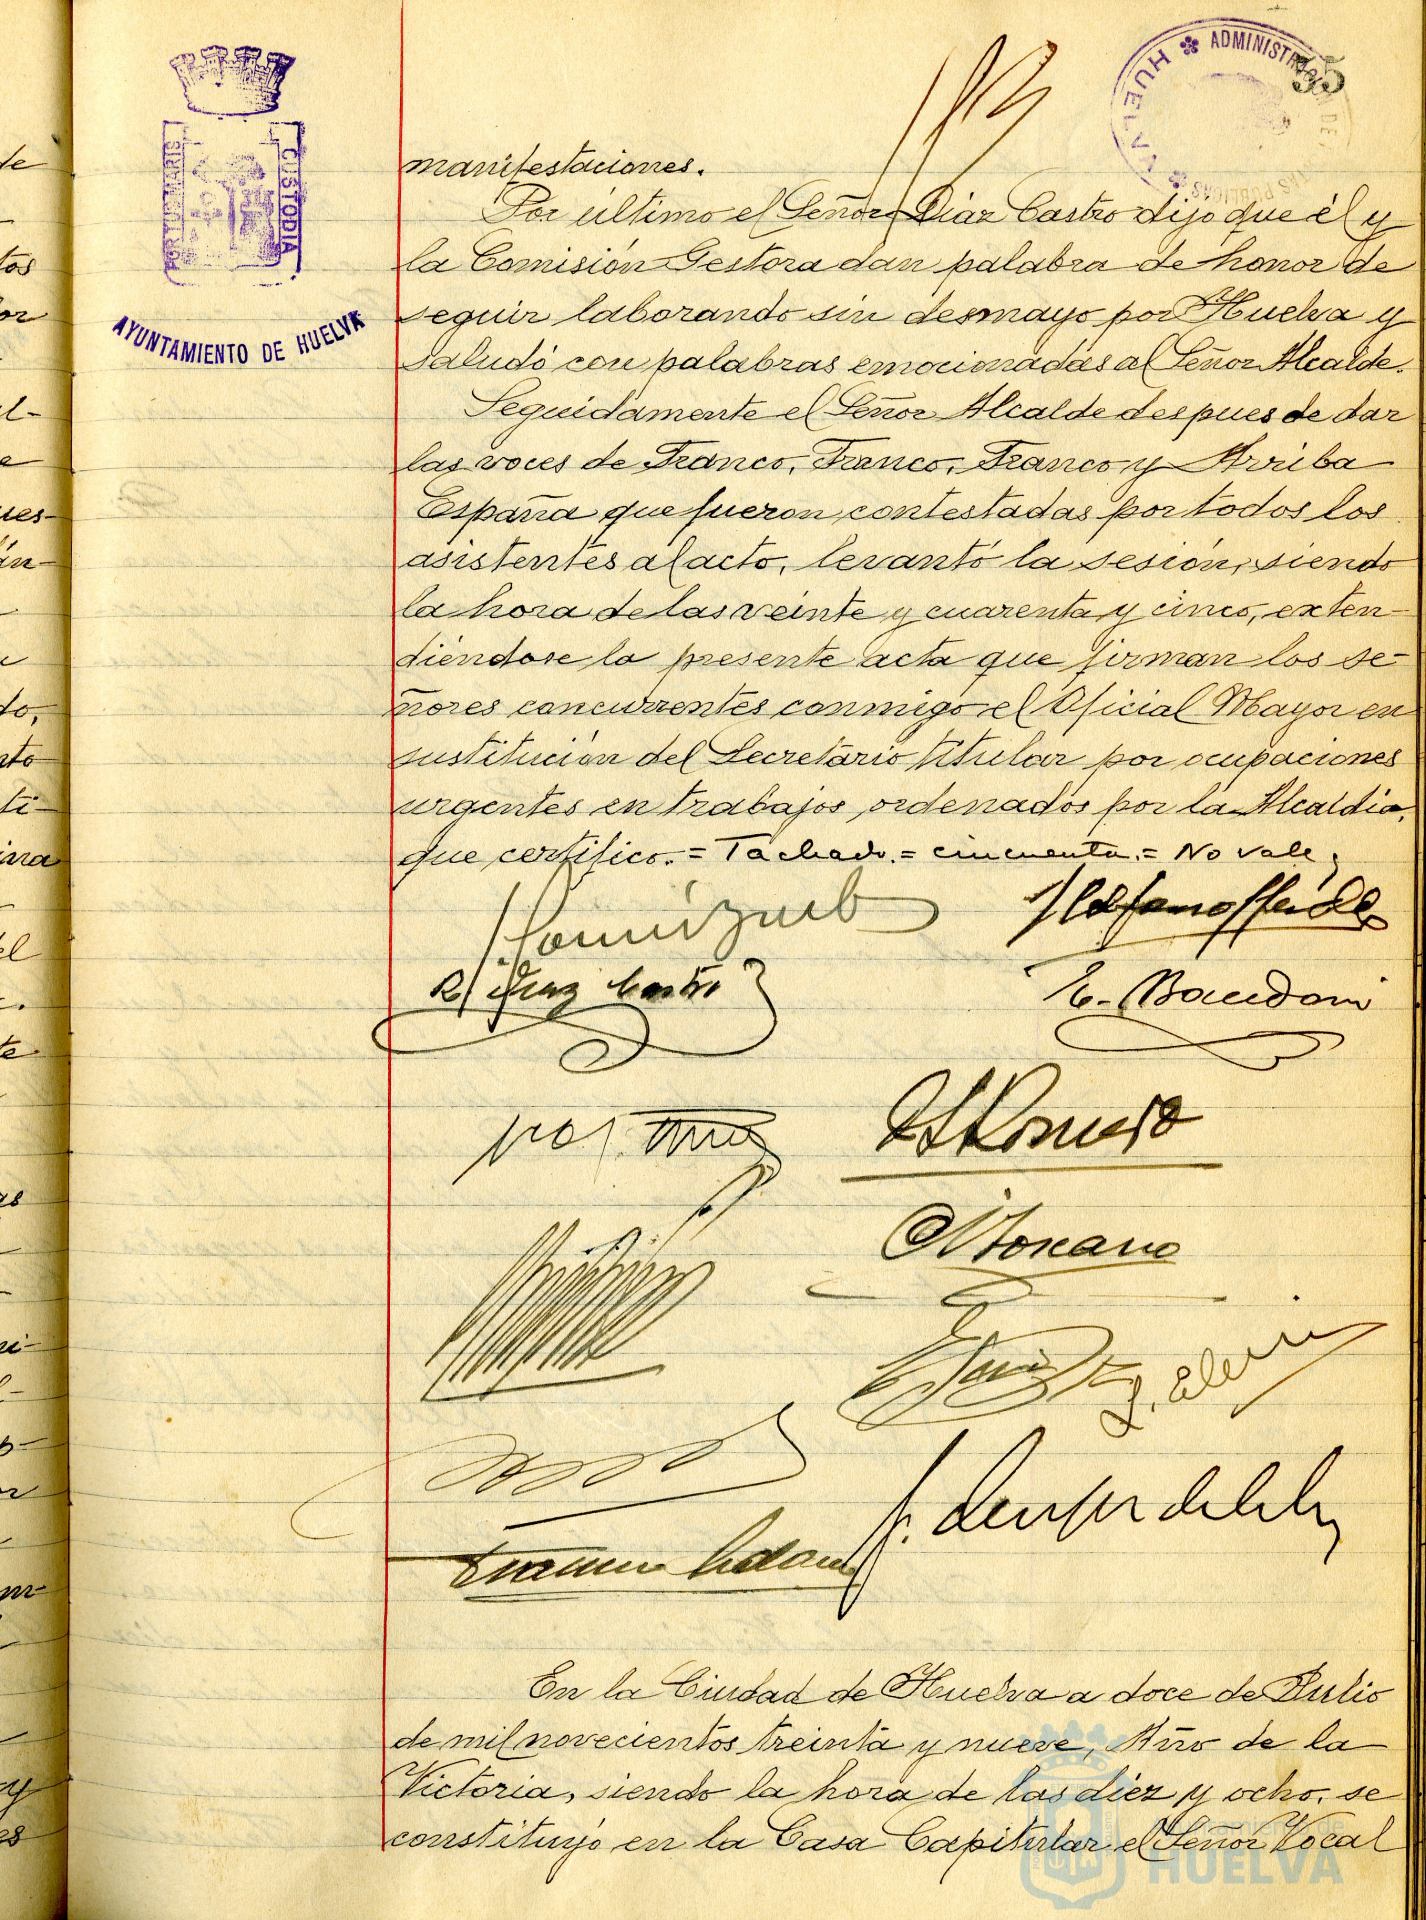 35
ADMINISTRACIÓN DE
HUELVA
PORTUS MARIS
CUSTODIA
AYUNTAMIENTO DE HUELVA
manifestaciones.
Por último el Señor Diaz Castro dijo que él y
la Comisión Gestora dan palabra de honor de
seguir laborando sin desmayo por Huelva y
saludó con palabras emocionadas al Señor Alcalde.
Seguidamente el Señor Alcalde despues de dar
las voces de Franco, Franco, Franco y Arriba
España que fueron contestadas por todos los
asistentes al acto, levantó la sesión, siendo
la hora de las veinte y cuarenta y cinco, exten-
diéndose la presente acta que firman los se-
ñores concurrentes conmigo el Oficial Mayor en
sustitución del Secretario titular por ocupaciones
urgentes en trabajos ordenados por la Alcaldía,
que certifico.= Tachado.= cincuenta.= No vale,
R. Diaz Castro
En la Ciudad de Huelva a doce de Julio
de mil novecientos treinta y nueve, Año de la
Victoria, siendo la hora de las diez y ocho, se
constituyó en la Casa Capitular el Señor Vocal
Ayuntamiento de
HUELVA